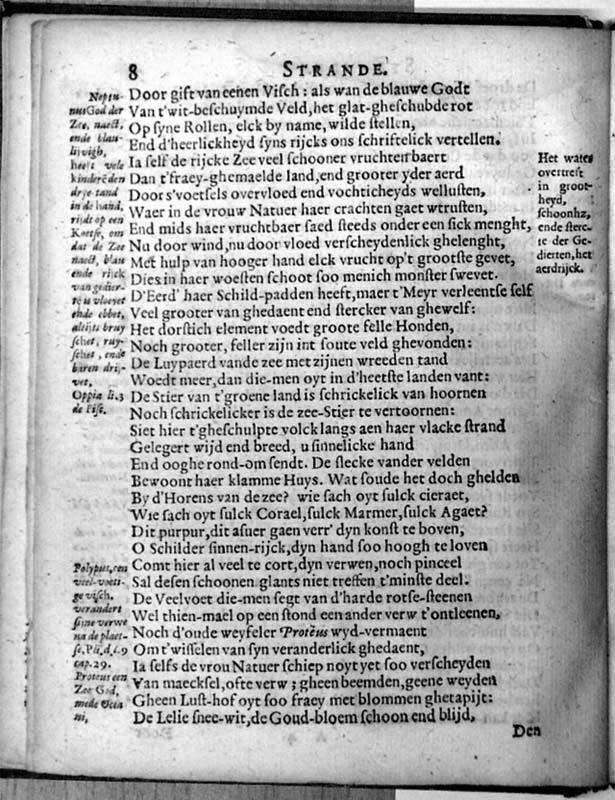 8 STRANDE.
Door gift van eenen Visch: als wan de blauwe Godt
Van t'wit-beschuymde Veld, het glat-gheschubde rot
Op syne Rollen, elck by name, wilde stellen,
End d'heerlickheyd syns rijcks ons schriftelick vertellen.
Ia self de rijcke Zee veel schooner vruchten baert
Dan t'fraey-ghemaelde land, end grooter yder aerd
Door s'voetsels overvloed end vochticheyds wellusten,
Waer in de vrouw Natuer haer crachten gaet wtrusten,
End mids haer vruchtbaer saed steeds onder een sick menght,
Nu door wind, nu door vloed verscheydenlick ghelenght,
Met hulp van hooger hand elck vrucht op't grootste gevet,
Dies in haer woesten schoot soo menich monster swevet.
D'Eerd' haer Schild-padden heeft, maer t'Meyr verleentse self
Veel grooter van ghedaent end stercker van ghewelf:
Het dorstich element voedt groote felle Honden,
Noch grooter, feller zijn int soute veld ghevonden:
De Luypaerd vande zee met zijnen wreeden tand
Woedt meer, dan die-men oyt in d'heetste landen vant:
De Stier van t'groene land is schrickelick van hoornen
Noch schrickelicker is de zee-Stier te vertoornen:
Siet hier t'gheschulpte volck langs aen haer vlacke strand
Gelegert wijd end breed, u sinnelicke hand
End ooghe rond-om sendt. De slecke vander velden
Bewoont haer klamme Huys. Wat soude het doch ghelden
By d'Horens van de zee? wie sach oyt sulck cieraet,
Wie sach oyt sulck Corael, sulck Marmer, sulck Agaet?
Dit purpur, dit asuer gaen verr' dyn konst te boven,
O Schilder sinnen-rijck, dyn hand soo hoogh te loven
Comt hier al veel te cort, dyn verwen, noch pinceel
Sal desen schoonen glants niet treffen t'minste deel.
De Veelvoet die-men segt van d'harde rotse-steenen
Wel thien-mael op een stond een ander verw t'ontleenen,
Noch d'oude weyfeler Proteus wyd-vermaent
Om t'wisselen van syn veranderlick ghedaent,
Ia selfs de vrou Natuer schiep noyt yet soo verscheyden
Van maecksel, ofte verw; gheen beemden, geene weyden
Gheen Lust-hof oyt soo fraey met blommen ghetapijt:
De Lelie snee-wit, de Goud-bloem schoon end blijd,
Den
Neptu-
nus God der
Zee, naect,
ende blau-
lijvigh,
heeft vele
kinderē den
drye-tand
in de hand,
rijdt op een
Koetse, om
dat de Zee
naect, blau
ende rijck
van gedier-
te is vloeyet
ende ebbet,
altijts bruy
schet, ruy-
schet, ende
baren drij-
vet,
Oppia li. 3
de Pisc.
Polypus, een
veel-voeti-
ge visch.
verandert
sijne verwe
na de plaet-
se. Pli, d. l. 9
cap. 29.
Proteus een
Zee God,
mede
Het water
overtreft
in groot-
heyd,
schoonhz,
ende sterc-
te der Ge-
dierten, het
aerdrijck.